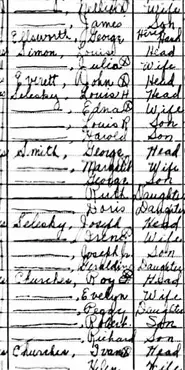 Wife
James Son
Ellsworth, George Hired Hand
Simon, Louis Head
Julia Wife
Everett, John Head
Selesky, Louis H Head
Edna Wife
Louis R Son
Harold Son
Smith, George Head
Margaret Wife
George Son
Ruth Daughter
Doris Daughter
Selesky, Joseph Head
Irene Wife
Joseph Jr Son
Geraldine Daughter
Churches, Roy Head
Evelyn Wife
Peggy Daughter
Robert Son
Richard Son
Churches, Ivan Head
Helen Wife